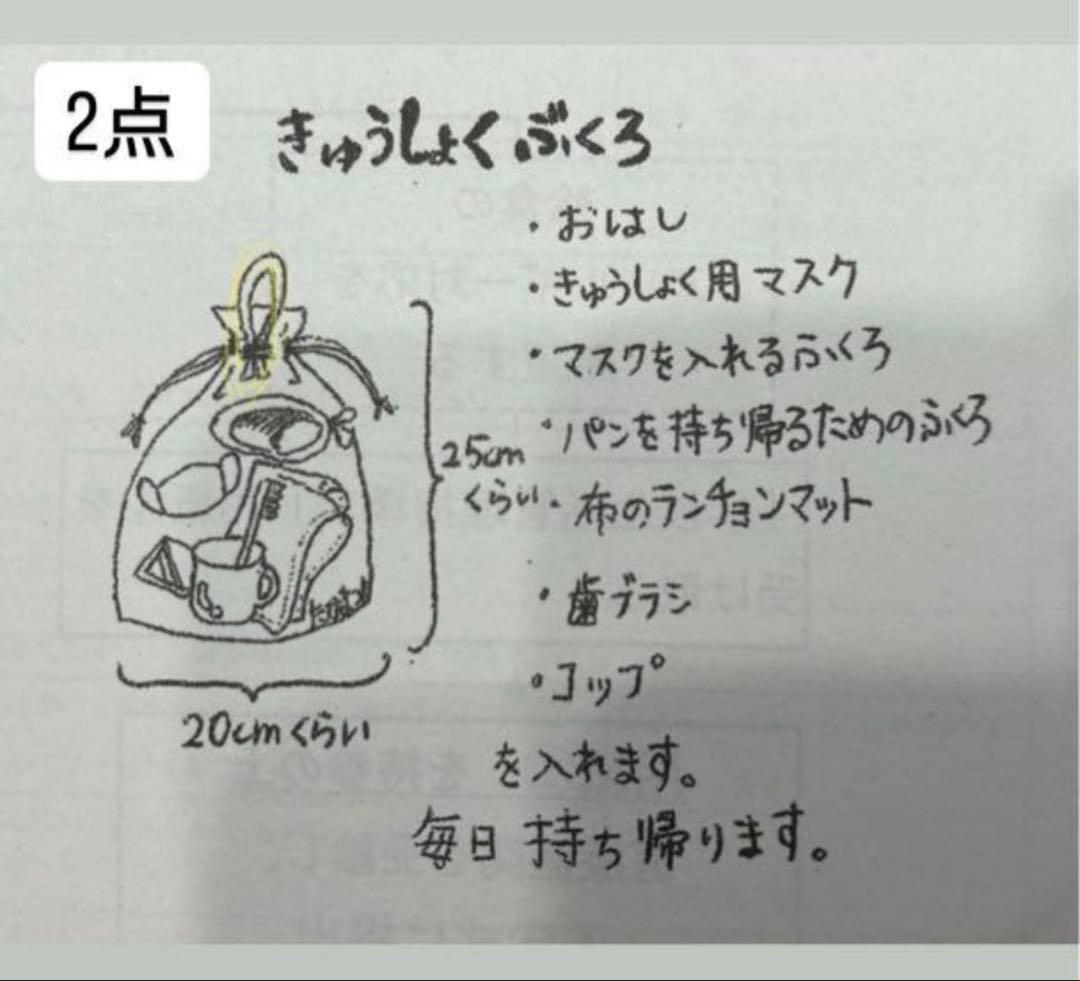 2点
きゅうしょくぶくろ
・おはし
・きゅうしょく用マスク
・マスクを入れるふくろ
・パンを持ち帰るためのふくろ
・布のランチョンマット
・歯ブラシ
・コップ
を入れます。
毎日持ち帰ります。
25cm
くらい
20cmくらい